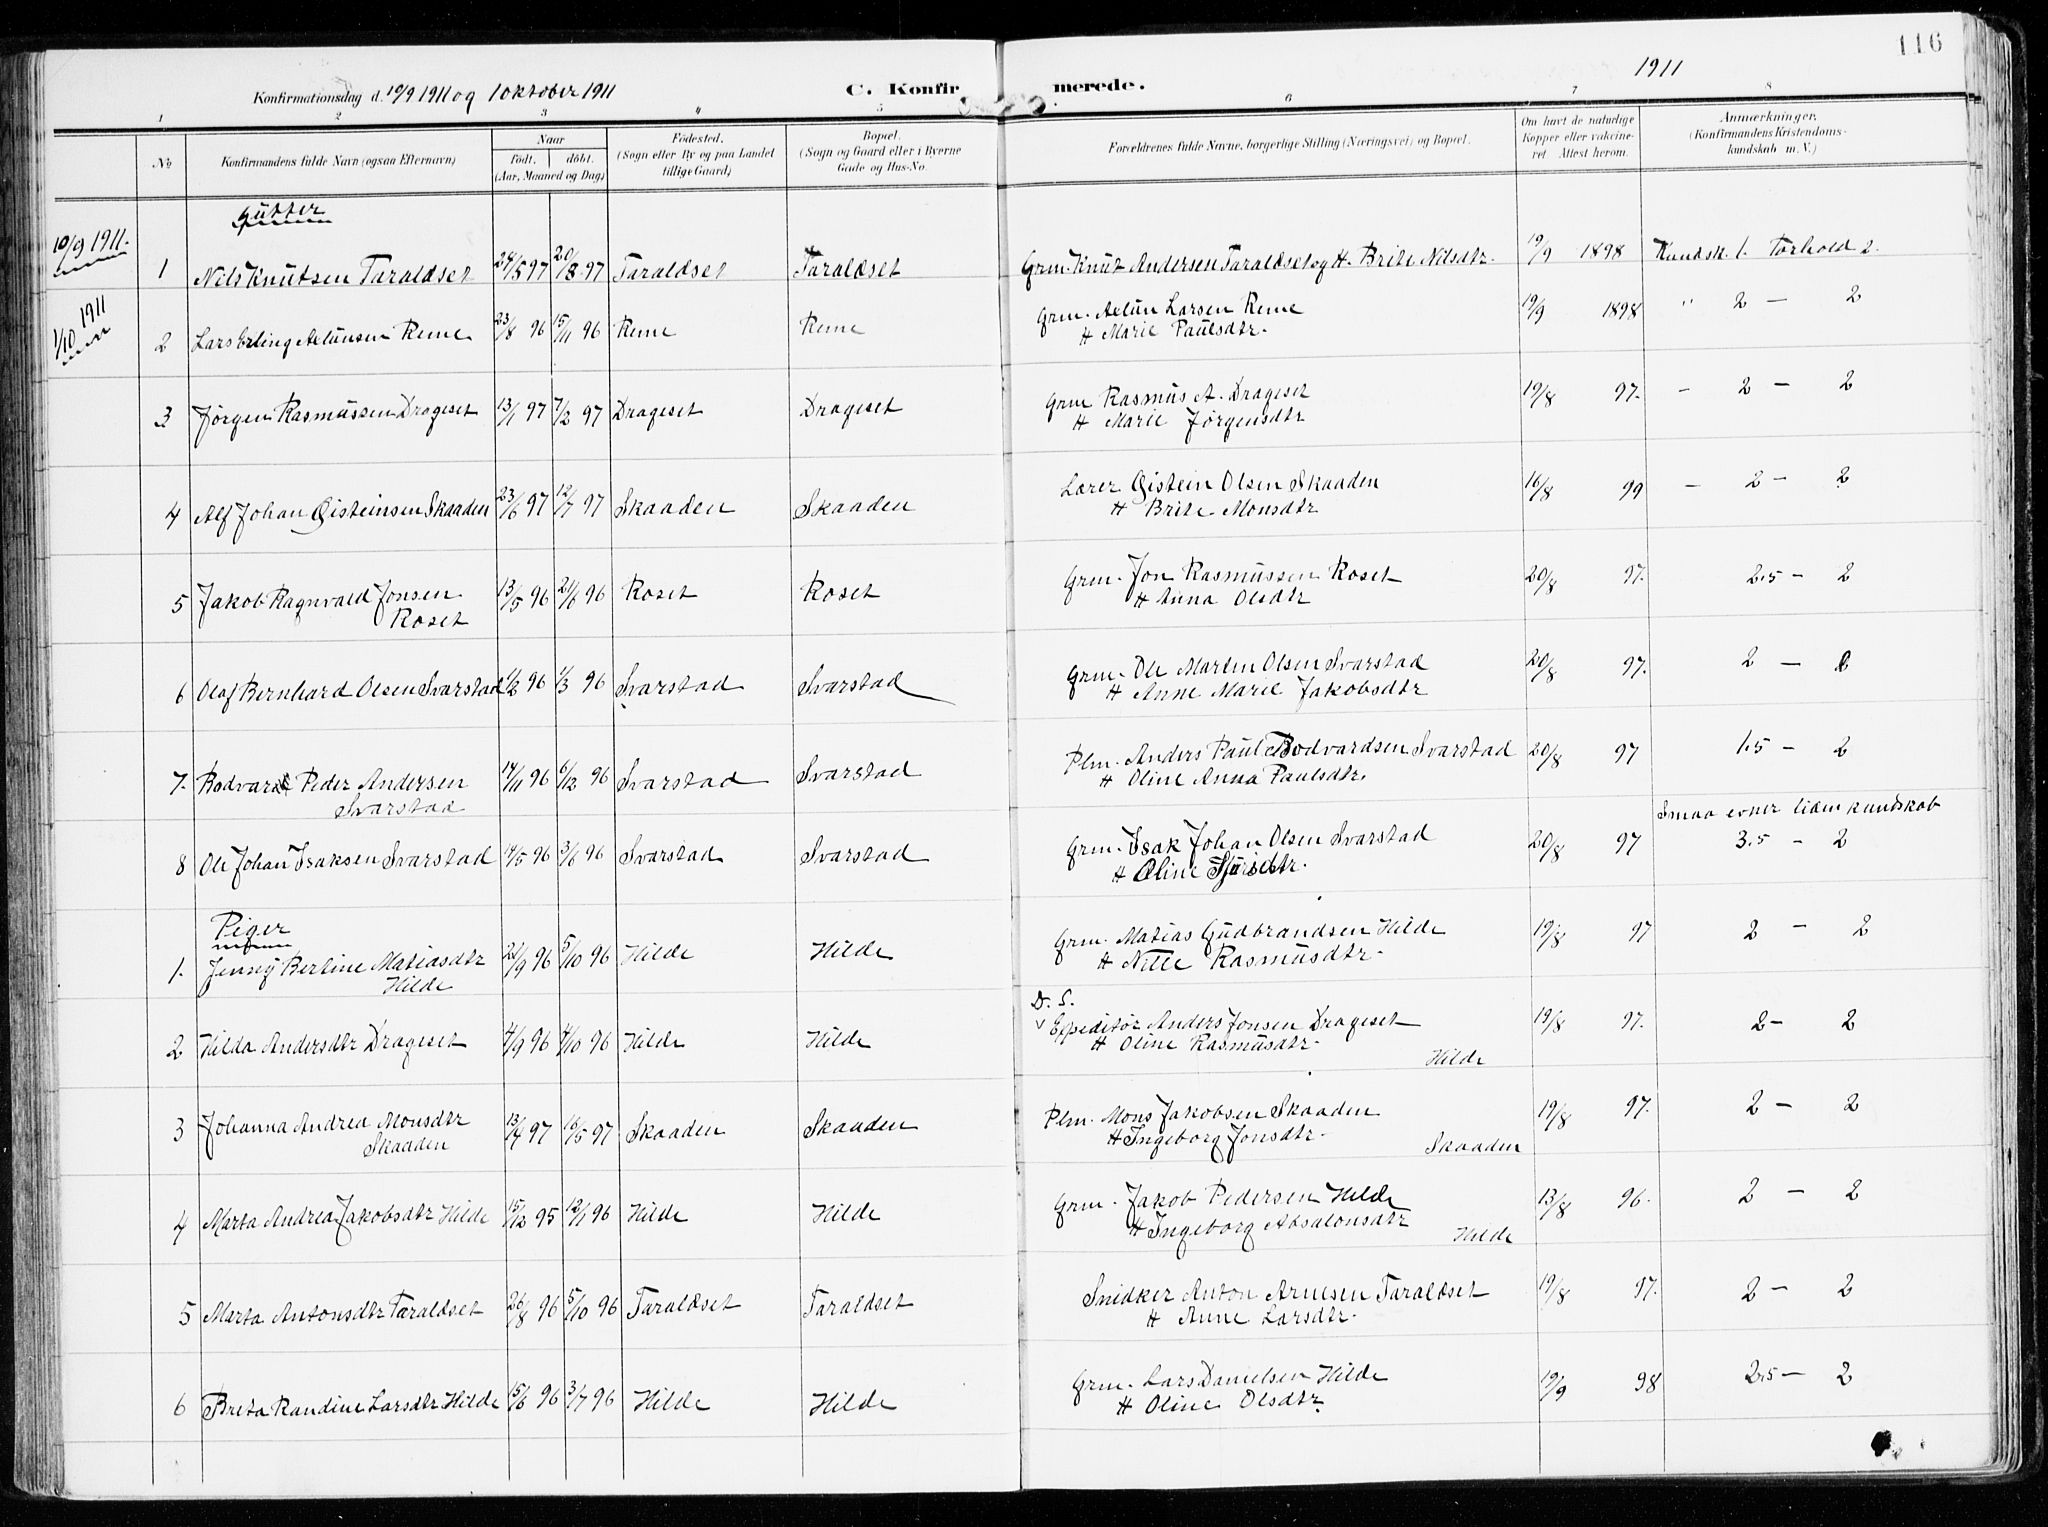 116
Konfirmationsdag d. 10/9 1911 og 1 oktober 1911
C. Konfirmerede.
1911
1 2 3 4 5 6 7 8
No
Konfirmandens fulde Navn (ogsaa Efternavn)
Naar
født. døbt.
(Aar, Maaned og Dag)
Fødested.
(Sogn eller By og paa Landet
tillige Gaard)
Bopæl.
(Sogn og Gaard eller i Byerne
Gade og Hus-No.
Forældrenes fulde Navne, borgerlige Stilling (Næringsvei) og Bopæl.
Om havt de naturlige
Kopper eller vakcine-
ret Attest herom.
Anmærkninger.
(Konfirmandens Kristendoms-
kundskab m. V.)
Gutter
10/9 1911.
1 Nils Knutsen Taraldset 24/5 97 20/8 97 Taraldset Taraldset Grm. Knut Andersen Taraldset og H. Brite Nilsdtr. 19/9 1898 Kundsk. 1. Forhold 2.
1/10 1911
2 Lars Erling Aelunsen Reme 23/8 96 15/11 96 Reme Reme Grm. Aelun Larsen Reme 19/9 1898 " 2 — 2
H Marie Paulsdtr.
3 Jørgen Rasmussen Drageset 13/1 97 7/2 97 Drageset Drageset Grm Rasmus A. Drageset 19/8 97. - 2 — 2
H Marie Jørgensdtr
4 Alf Johan Øisteinsen Skaaden 23/6 97 12/7 97 Skaaden Skaaden Lærer Øistein Olsen Skaaden 16/8 99 - 2 — 2
H Brite Monsdtr
5 Jakob Ragnvald Jonsen 13/5 96 21/6 96 Roset Roset Grm. Jon Rasmussen Roset 20/8 97. 2.5 — 2
Roset H Anna Olsdtr
6 Olaf Bernhard Olsen Svarstad 11/2 96 1/3 96 Svarstad Svarstad Grm. Ole Martin Olsen Svarstad 20/8 97. 2 — 2
H Anne Marie Jakobsdtr
7. Bodvard Peder Andersen 14/11 96 6/12 96 Svarstad Svarstad Plm. Anders Paul Bodvardsen Svarstad 20/8 97 1.5 — 2
Svarstad H Oline Anna Paulsdtr.
Smaa evner liden kundskab
8 Ole Johan Isaksen Svarstad 14/5 96 3/6 96 Svarstad Svarstad Grm. Isak Johan Olsen Svarstad 20/8 97 3.5 — 2
H Oline
Piger
1. Jenny Bertine Matiasdtr 21/9 96 5/10 96 Hilde Hilde Grm. Matias Gudbrandsen Hilde 19/8 97 2 — 2
Hilde H Nille Rasmusdtr.
D. S.
2 Hilda Andersdtr Drageset 4/9 96 4/10 96 Hilde Hilde v Expeditør Anders Jonsen Drageset 19/8 97. 2 — 2
H Oline Rasmusdtr. Hilde
3 Johanna Andrea Monsdtr 13/4 97 16/5 97 Skaaden Skaaden Plm. Mons Jakobsen Skaaden 19/8 97. 2 — 2
Skaaden H Ingeborg Jonsdtr. Skaaden
4 Marta Andrea Jakobsdtr Hilde 15/12 95 12/1 96 Hilde Hilde Grm. Jakob Pedersen Hilde 13/8 96. 2 — 2
H Ingeborg Absalonsdtr Hilde
5 Marta Antonsdtr Taraldset 26/8 96 5/10 96 Taraldset Taraldset Snidker Anton Arnesen Taraldset 19/8 97. 2 — 2
H Anne Larsdtr.
6 Brita Randine Larsdtr Hilde 15/6 96 3/7 96 Hilde Hilde Grm. Lars Danielsen Hilde 19/9 98 2.5 — 2
H Oline Olsdtr.